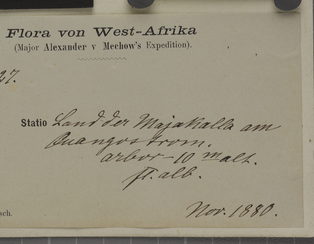 Flora von West-Afrika
(Major Alexander v Mechow's Expedition).
37.
Statio Land der Majakalla am
Quangostrom.
arbor - 10 m alt.
fl. alb.
Nov. 1880.
sch.